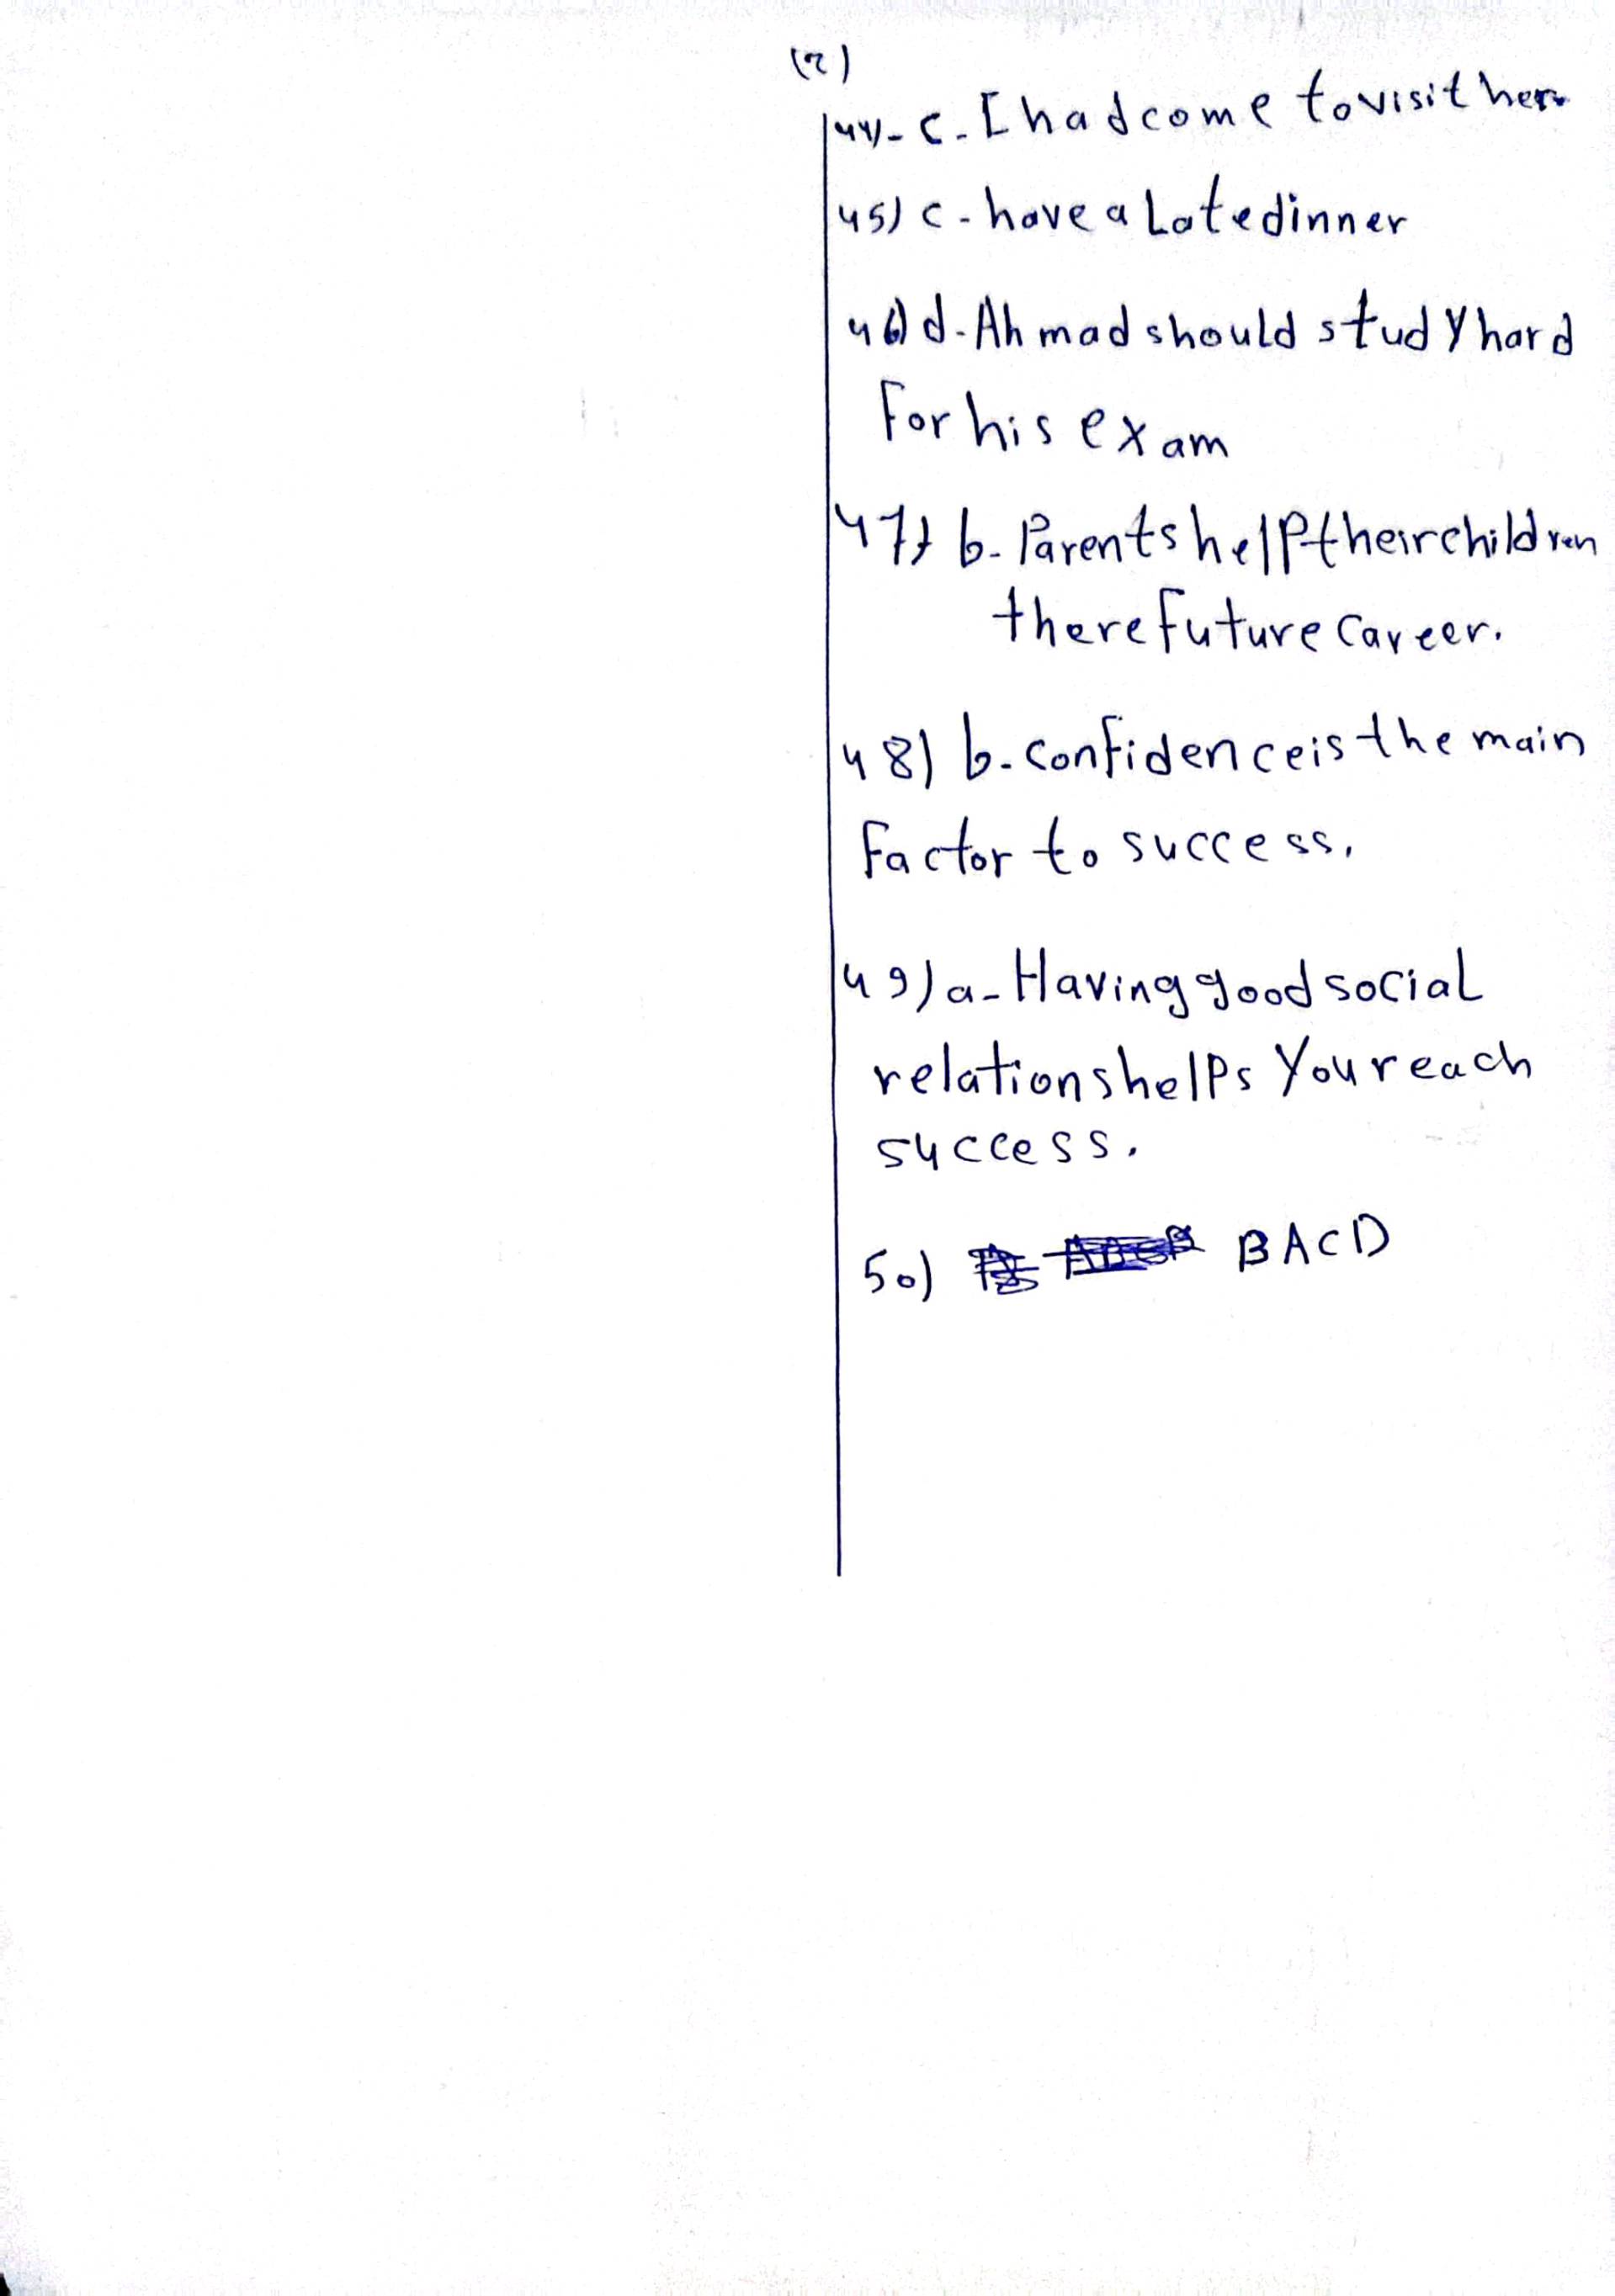 (2)
44)- c. I had come to visit her
45) c - have a Late dinner
46) d. Ahmad should study hard
For his exam
47) b. Parents help their children
there Future Career.
48) b. confidence is the main
Factor to success.
49) a - Having good social
relations helps You reach
success.
50) BACD